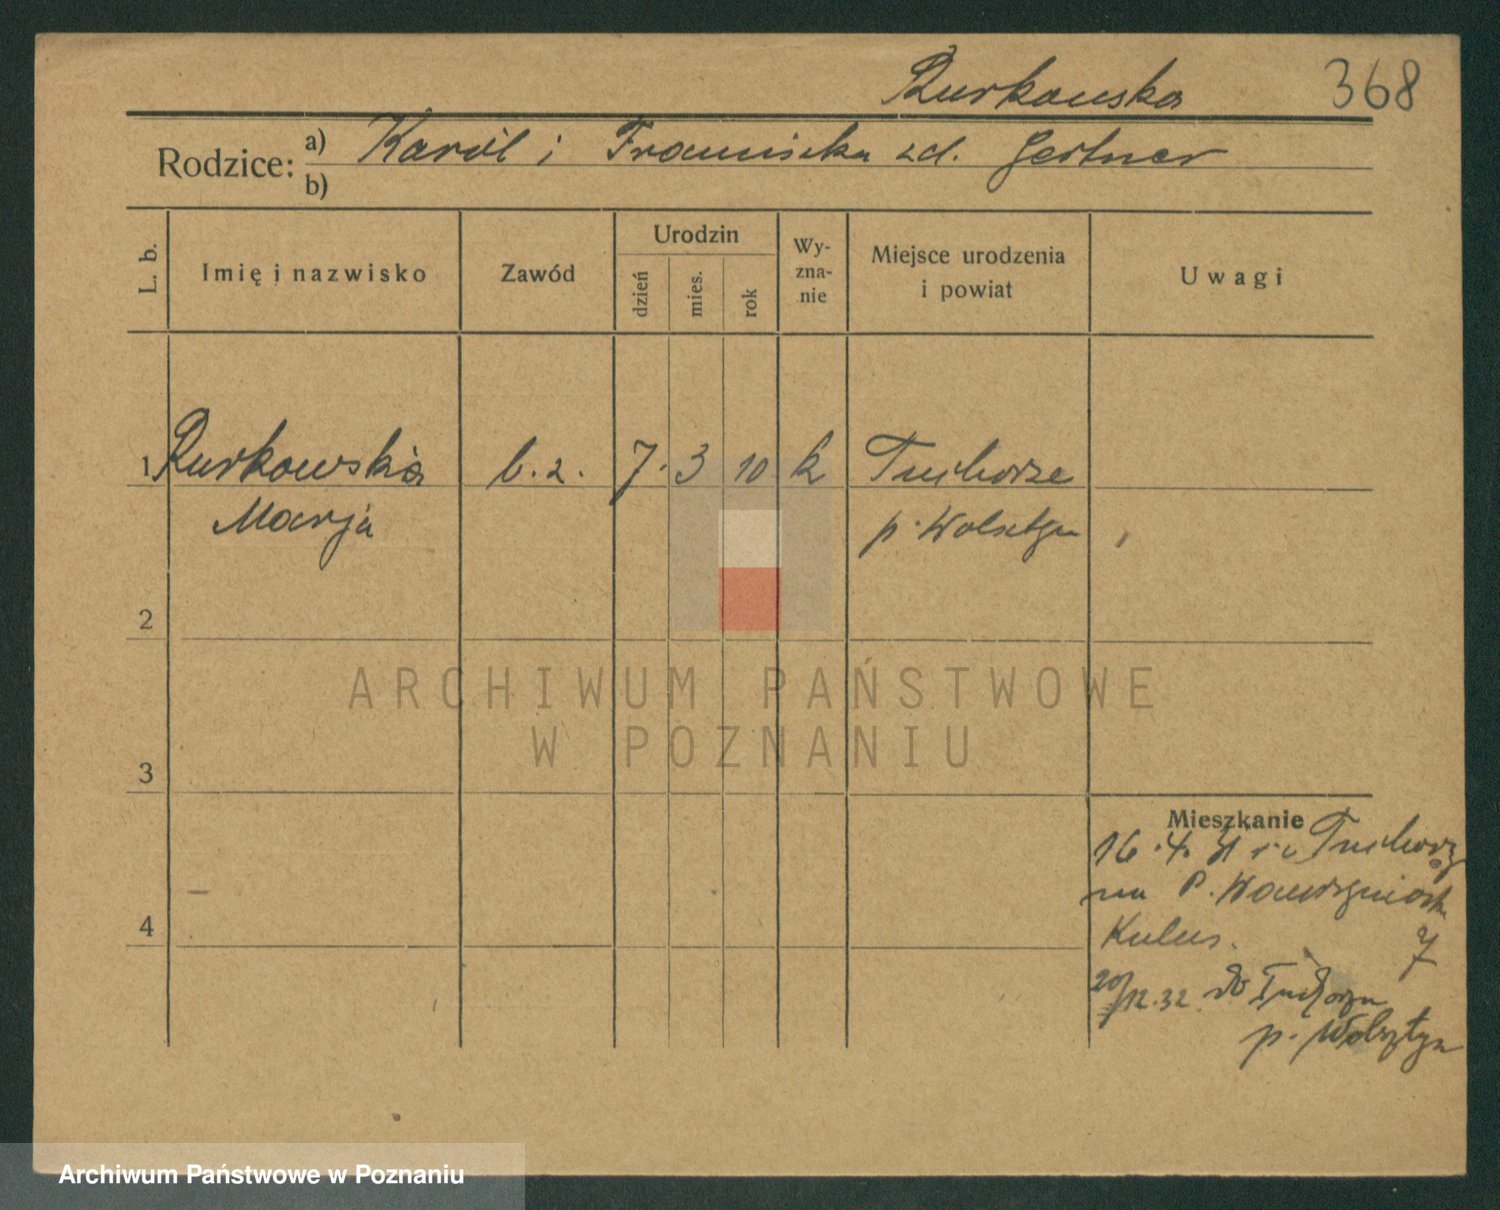 Rurkowska 368
Rodzice: a) Karól i Franciszka zd. Gertner
b)
L. b. Imię i nazwisko Zawód Urodzin dzień mies. rok Wy-zna-nie Miejsce urodzenia i powiat Uwagi
1 Rurkowska b. z. 7. 3 10 k Tuchorze
Marja p. Wolsztyn
2
ARCHIWUM PAŃSTWOWE
W POZNANIU
3
Mieszkanie
16.4. 31 Tuchorz
na P. Wawrzyniaka
4
Kulus. 7
20/12.32 do Tuchorza
p. Wolsztyn
Archiwum Państwowe w Poznaniu